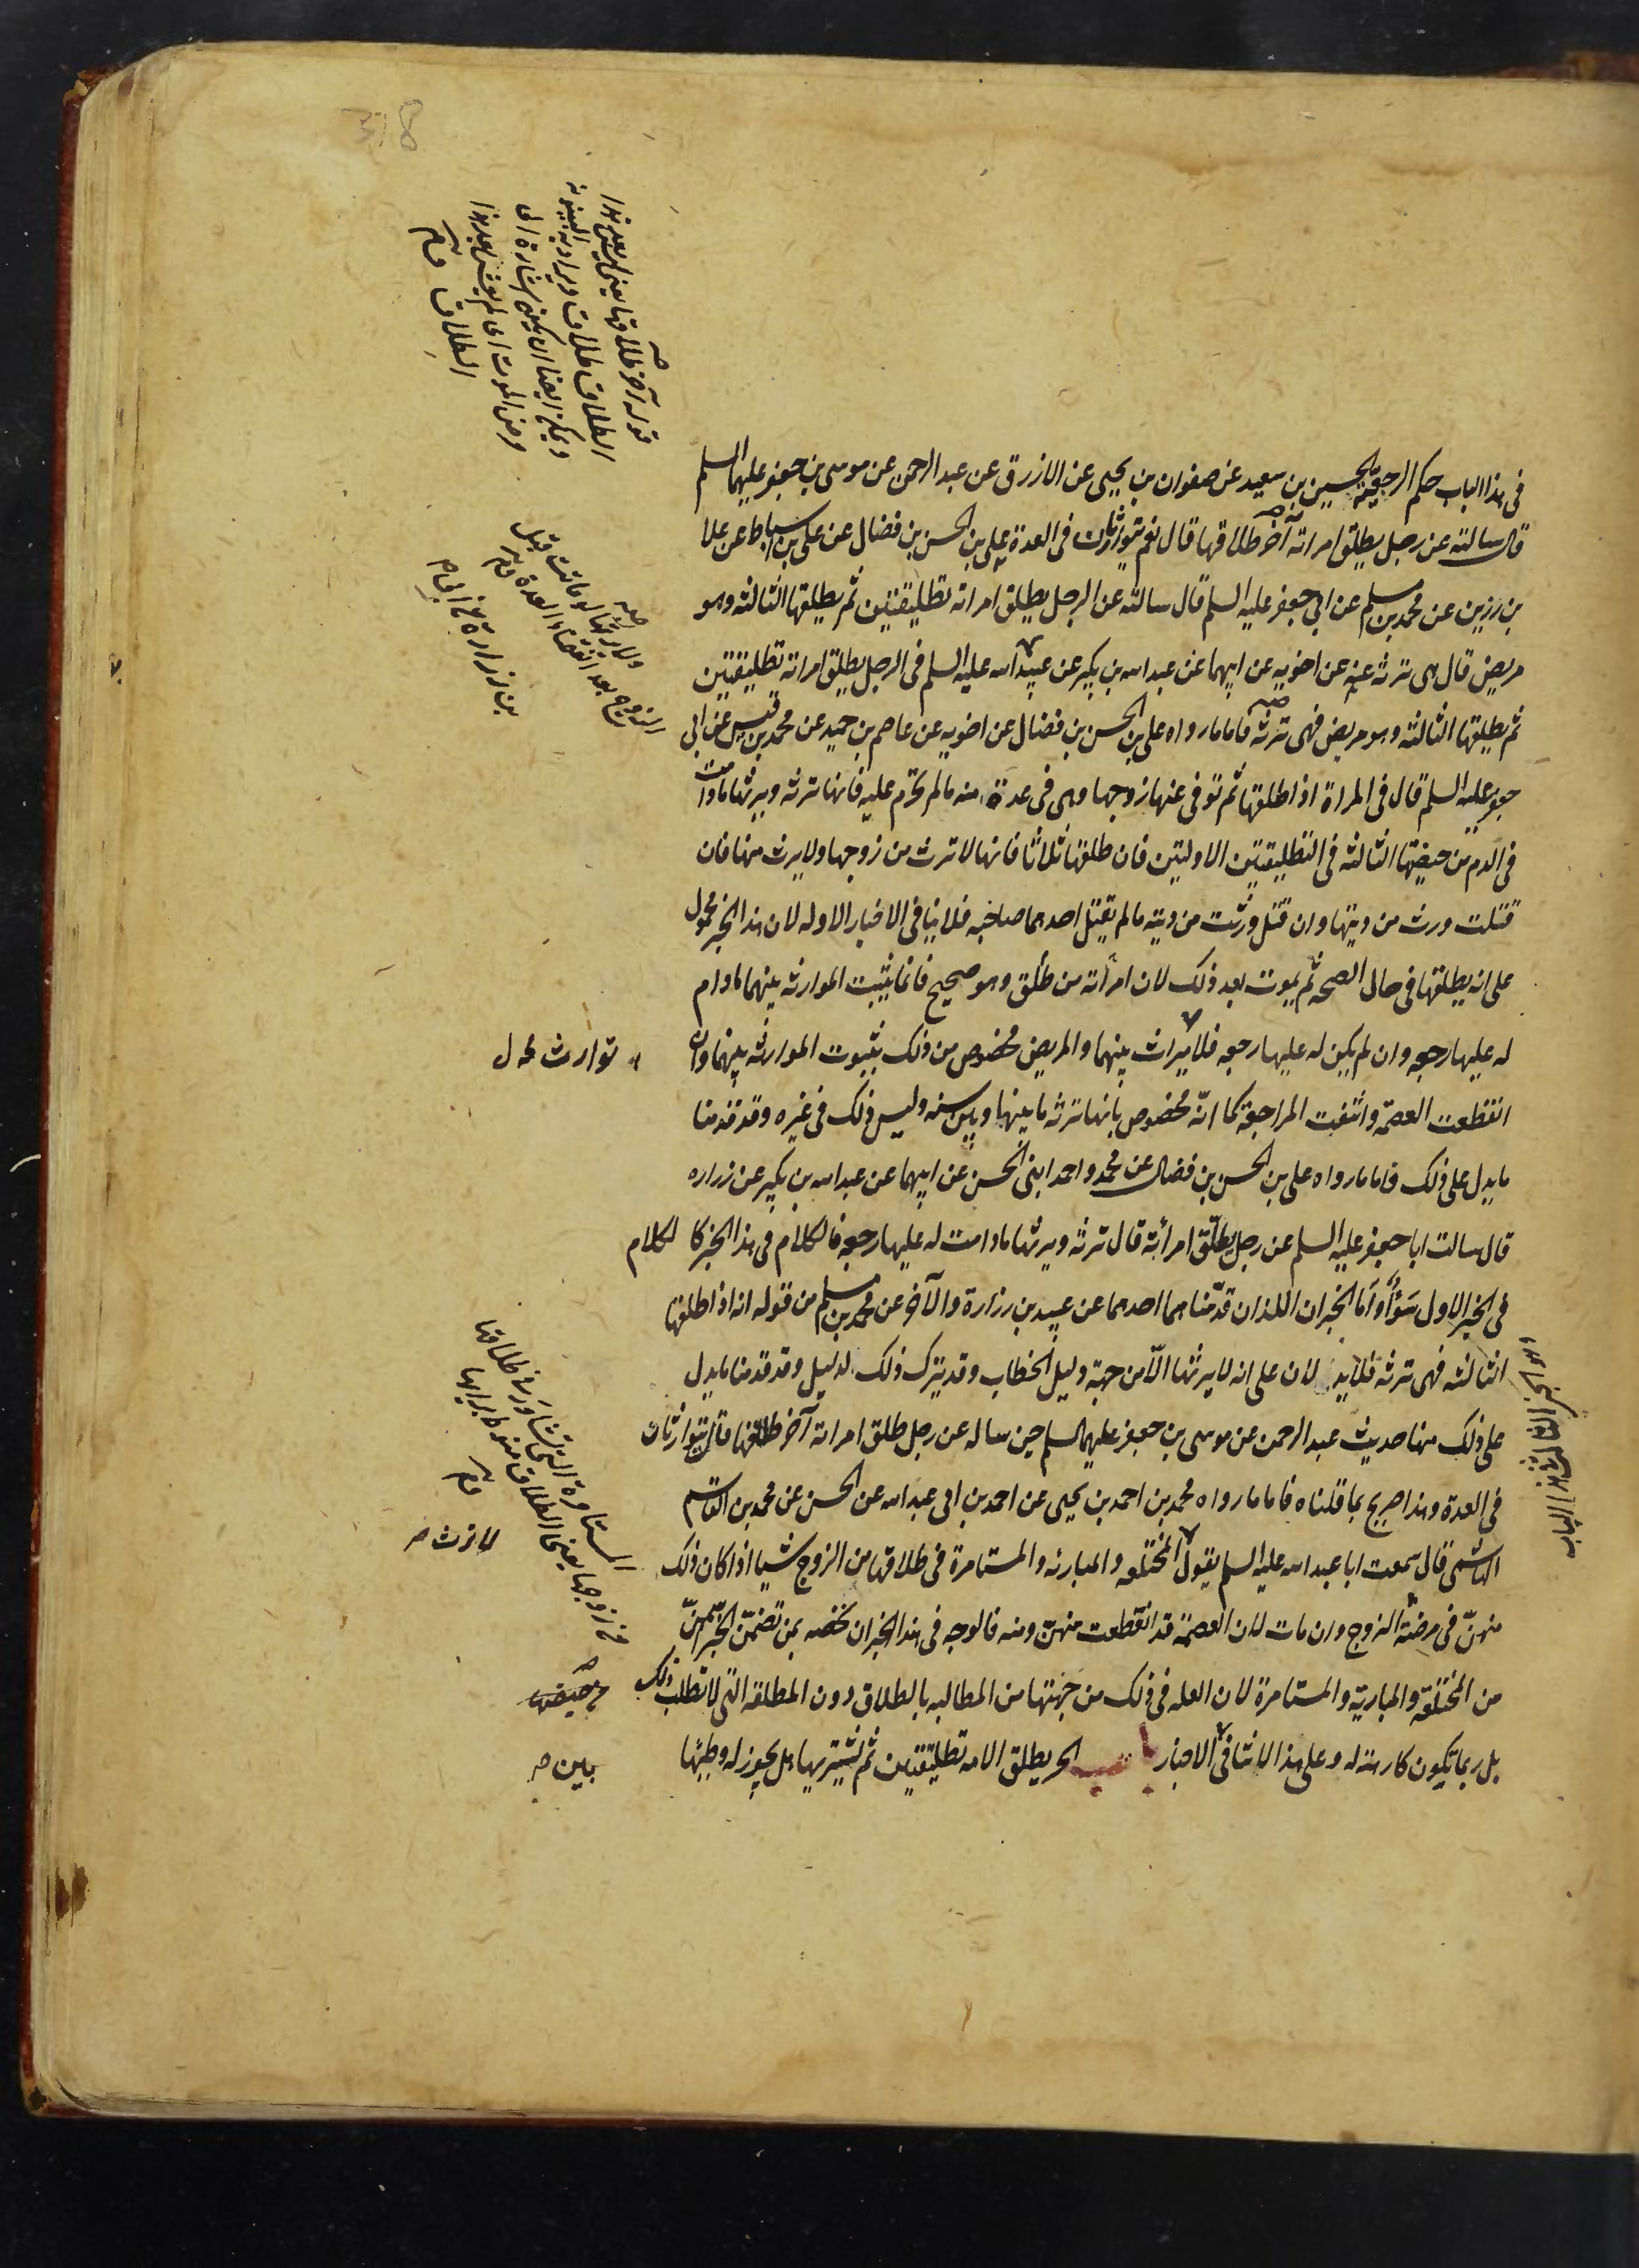 في هذا الباب حكم الرجعية الحسين بن سعيد عن صفوان بن يحيى عن الازرق عن عبد الرحمن عن موسى بن جعفر عليهما السلم
قال سالته عن رجل يطلق امراته آخر طلاقها قال نعم يتوارثان في العدة علي بن الحسن بن فضال عن علي بن اسباط عن علا
بن رزين عن محمد بن مسلم عن ابي جعفر عليه السلم قال سالته عن الرجل يطلق امراته تطليقتين ثم يطلقها الثالثه وهو
مريض قال هي ترثه عنه عن اخويه عن ابيهما عن عبد الله بن بكير عن عبيد الله عليه السلم في الرجل يطلق امراته تطليقتين
ثم يطلقها الثالثه وهو مريض فهي ترثه فاما ما رواه علي بن الحسن بن فضال عن اخويه عن عاصم بن حميد عن محمد بن قيس عن ابي
جعفر عليه السلم قال في المراة اذا طلقها ثم توفي عنها زوجها وهي في عدة منه ما لم تحرم عليه فانها ترثه ويرثها مادامت
في الدم من حيضتها الثالثه في التطليقتين الاوليتين فان طلقها ثلاثا فانها لا ترث من زوجها ولا يرث منها فان
قتلت ورث من ديتها وان قتل ورثت من ديته ما لم يقتل احدهما صاحبه فلا ينافي الاخبار الاوله لان هذا الخبر محمول
على انه يطلقها في حال الصحه ثم يموت بعد ذلك لان امرأته من طلق وهو صحيح فانما يثبت الموارثه بينهما مادام
له عليها رجعه وان لم يكن له عليها رجعه فلا ميراث بينهما والمريض مخصوص من ذلك بثبوت الموارثه بينهما وان
انقطعت العصمة وانتفت المراجعة كما انّه مخصوص بانها ترثه ما بينها وبين سنه وليس ذلك في غيره وقد قدمنا
ما يدل على ذلك فاما ما رواه علي بن الحسن بن فضال عن محمد واحمد ابني الحسن عن ابيهما عن عبد الله بن بكير عن زراره
قال سالت ابا جعفر عليه السلم عن رجل يطلّق امرأته قال ترثه ويرثها مادامت له عليها رجعه فالكلام في هذا الخبر كالكلام
في الخبر الاول سَوُاءً وأما الخبران اللذان قدّمناهما احدهما عن عبيد بن زرارة والآخر عن محمد بن مسلم من قوله انه اذا طلقها
الثالثه فهي ترثه فلا يدلان على انه لا يرثها الّا من جهة دليل الخطاب وقد يترك ذلك لدليل وقد قدمنا ما يدل
على ذلك منها حديث عبد الرحمن عن موسى بن جعفر عليهما السلم حين ساله عن رجل طلق امراته آخر طلاقها قال يتوارثان
في العدة وهذا صريح بما قلناه فاما ما رواه محمد بن احمد بن يحيى عن احمد بن ابي عبد الله عن الحسن عن محمد بن القاسم
الهاشمى قال سمعت ابا عبد الله عليه السلم يقول المختلعه والمبارئه والمستامرة في طلاقها من الزوج شيا اذا كان ذلك
منهنّ في مرض الزوج وان مات لان العصمة قد انقطعت منهنّ ومنه فالوجه في هذا الخبر ان نخصه بمن تضمّن الخبر من
من المختلعة والمبارية والمستامرة لان العله في ذلك من جهتها من المطالبه بالطلاق دون المطلقه التي لا تطلب ذلك
بل ربما يكون كارهة له وعلى هذا لا تنافي الاخبار باب الحر يطلق الامه تطليقتين ثم يشتريها هل يجوز له وطيها
قوله آخر طلاقها يعني
الطلاق طلاق ويراد به البينونه
ويمكن ايضا ان يكون اشارة الى
مرض الموت اى لم يعش بعد هذا
الطلاق
ولا يرثها لو ماتت قبل
الزوج بعد انقضاء العدة
بن زرارة عن ابي ص
توارث محل
المستامرة التي تشاور في طلاقها
مع زوجها يعني الطلاق منوط برايها
لا ترث ص
مرضها
بين ص